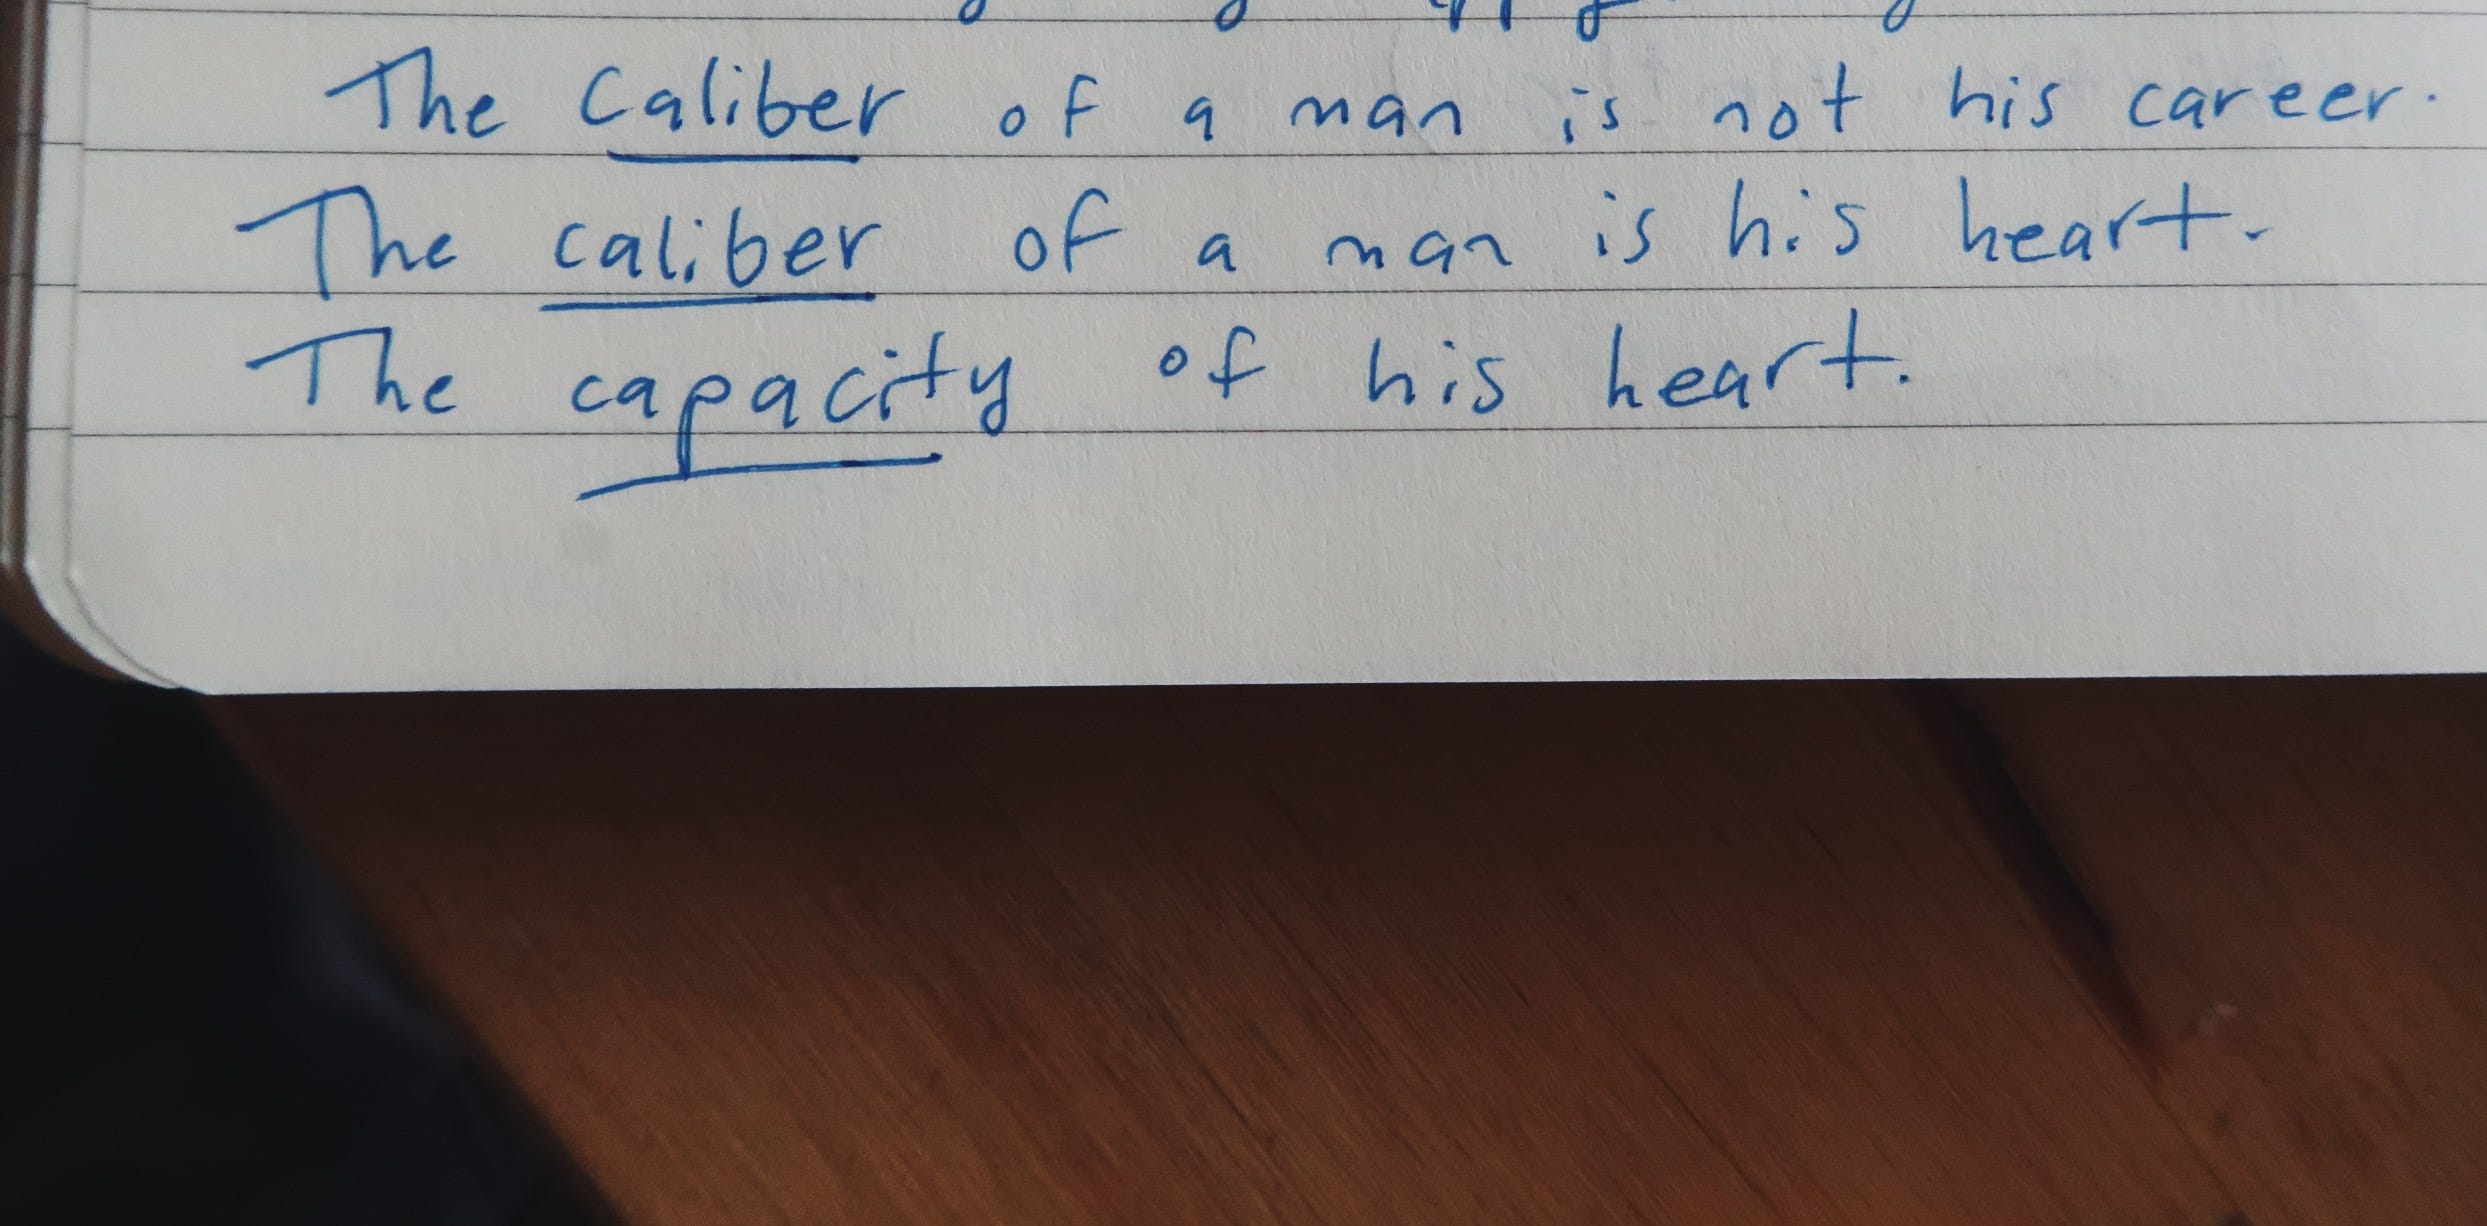 The caliber of a man is not his career.
The caliber of a man is his heart.
The capacity of his heart.